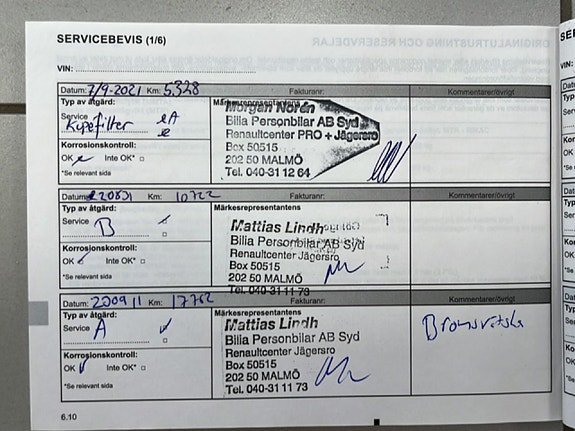 SERVICEBEVIS (1/6)
VIN:
Datum: 7/9-2021 Km: 5,328 Fakturanr: Kommentarer/övrigt
Typ av åtgärd: Märkesrepresentantens
Service A
Kupefilter
Morgan Norén
Bilia Personbilar AB Syd
Renaultcenter PRO + Jägersro
Box 50515
202 50 MALMÖ
Tel. 040-31 12 64
Korrosionskontroll:
OK Inte OK*
*Se relevant sida
Datum: Km: 10722 Fakturanr: Kommentarer/övrigt
Typ av åtgärd: Märkesrepresentantens
Service
B
Mattias Lindh
Bilia Personbilar AB Syd
Renaultcenter Jägersro
Box 50515
202 50 MALMÖ
Tel. 040-31 11 73
Korrosionskontroll:
OK Inte OK*
*Se relevant sida
Datum: Km: 17762 Fakturanr: Kommentarer/övrigt
Typ av åtgärd: Märkesrepresentantens
Service
A
Mattias Lindh
Bilia Personbilar AB Syd
Renaultcenter Jägersro
Box 50515
202 50 MALMÖ
Tel. 040-31 11 73
Bromsvätska
Korrosionskontroll:
OK Inte OK*
*Se relevant sida
6.10